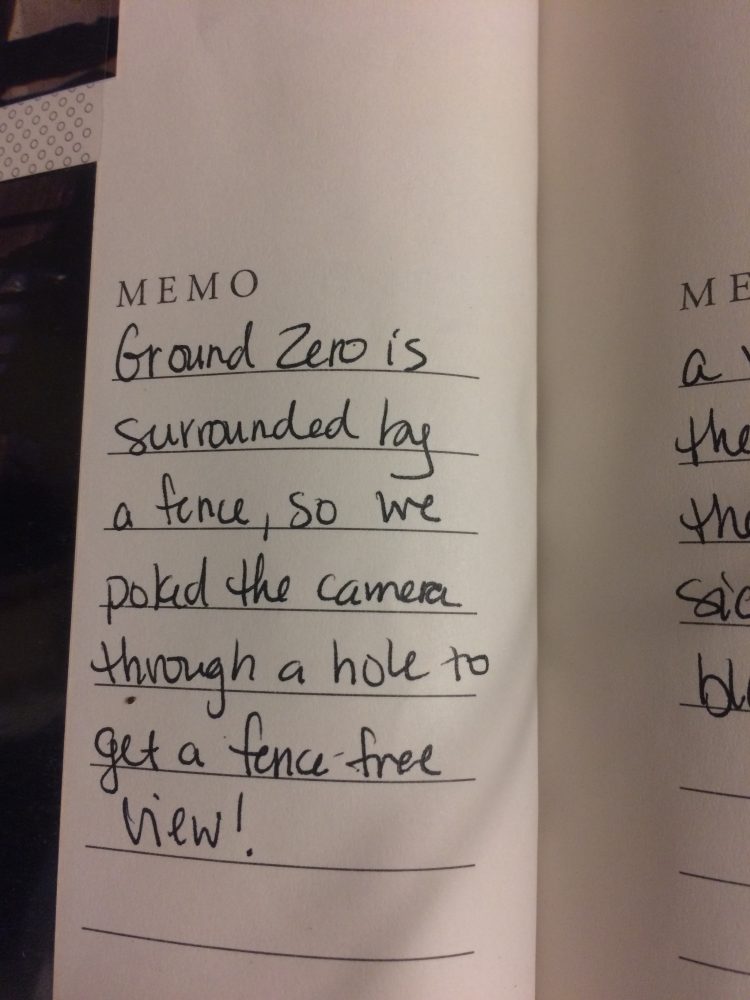 MEMO
Ground Zero is
surrounded by
a fence, so we
poked the camera
through a hole to
get a fence-free
view!
ME
a
the
the